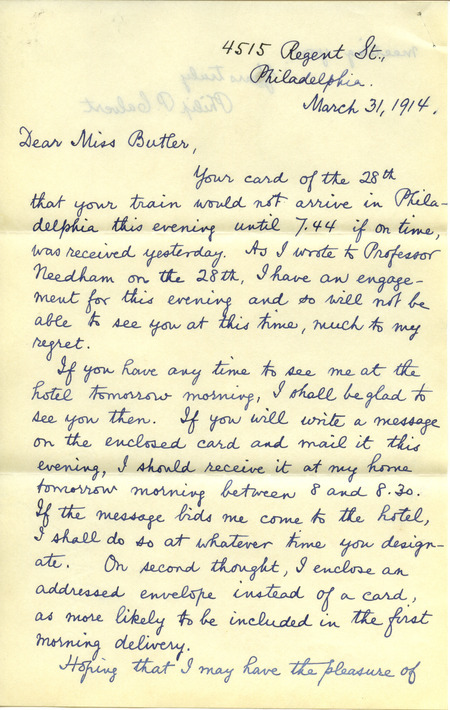 4515 Regent St.,
Philadelphia.
March 31, 1914.
Dear Miss Butler,
Your card of the 28th
that your train would not arrive in Phila-
delphia this evening until 7.44 if on time,
was received yesterday. As I wrote to Professor
Needham on the 28th, I have an engage-
ment for this evening and so will not be
able to see you at this time, much to my
regret.
If you have any time to see me at the
hotel tomorrow morning, I shall be glad to
see you then. If you will write a message
on the enclosed card and mail it this
evening, I should receive it at my home
tomorrow morning between 8 and 8.30.
If the message bids me come to the hotel,
I shall do so at whatever time you design-
ate. On second thought, I enclose an
addressed envelope instead of a card,
as more likely to be included in the first
morning delivery.
Hoping that I may have the pleasure of
meeting you
yours truly
Philip P. Calvert